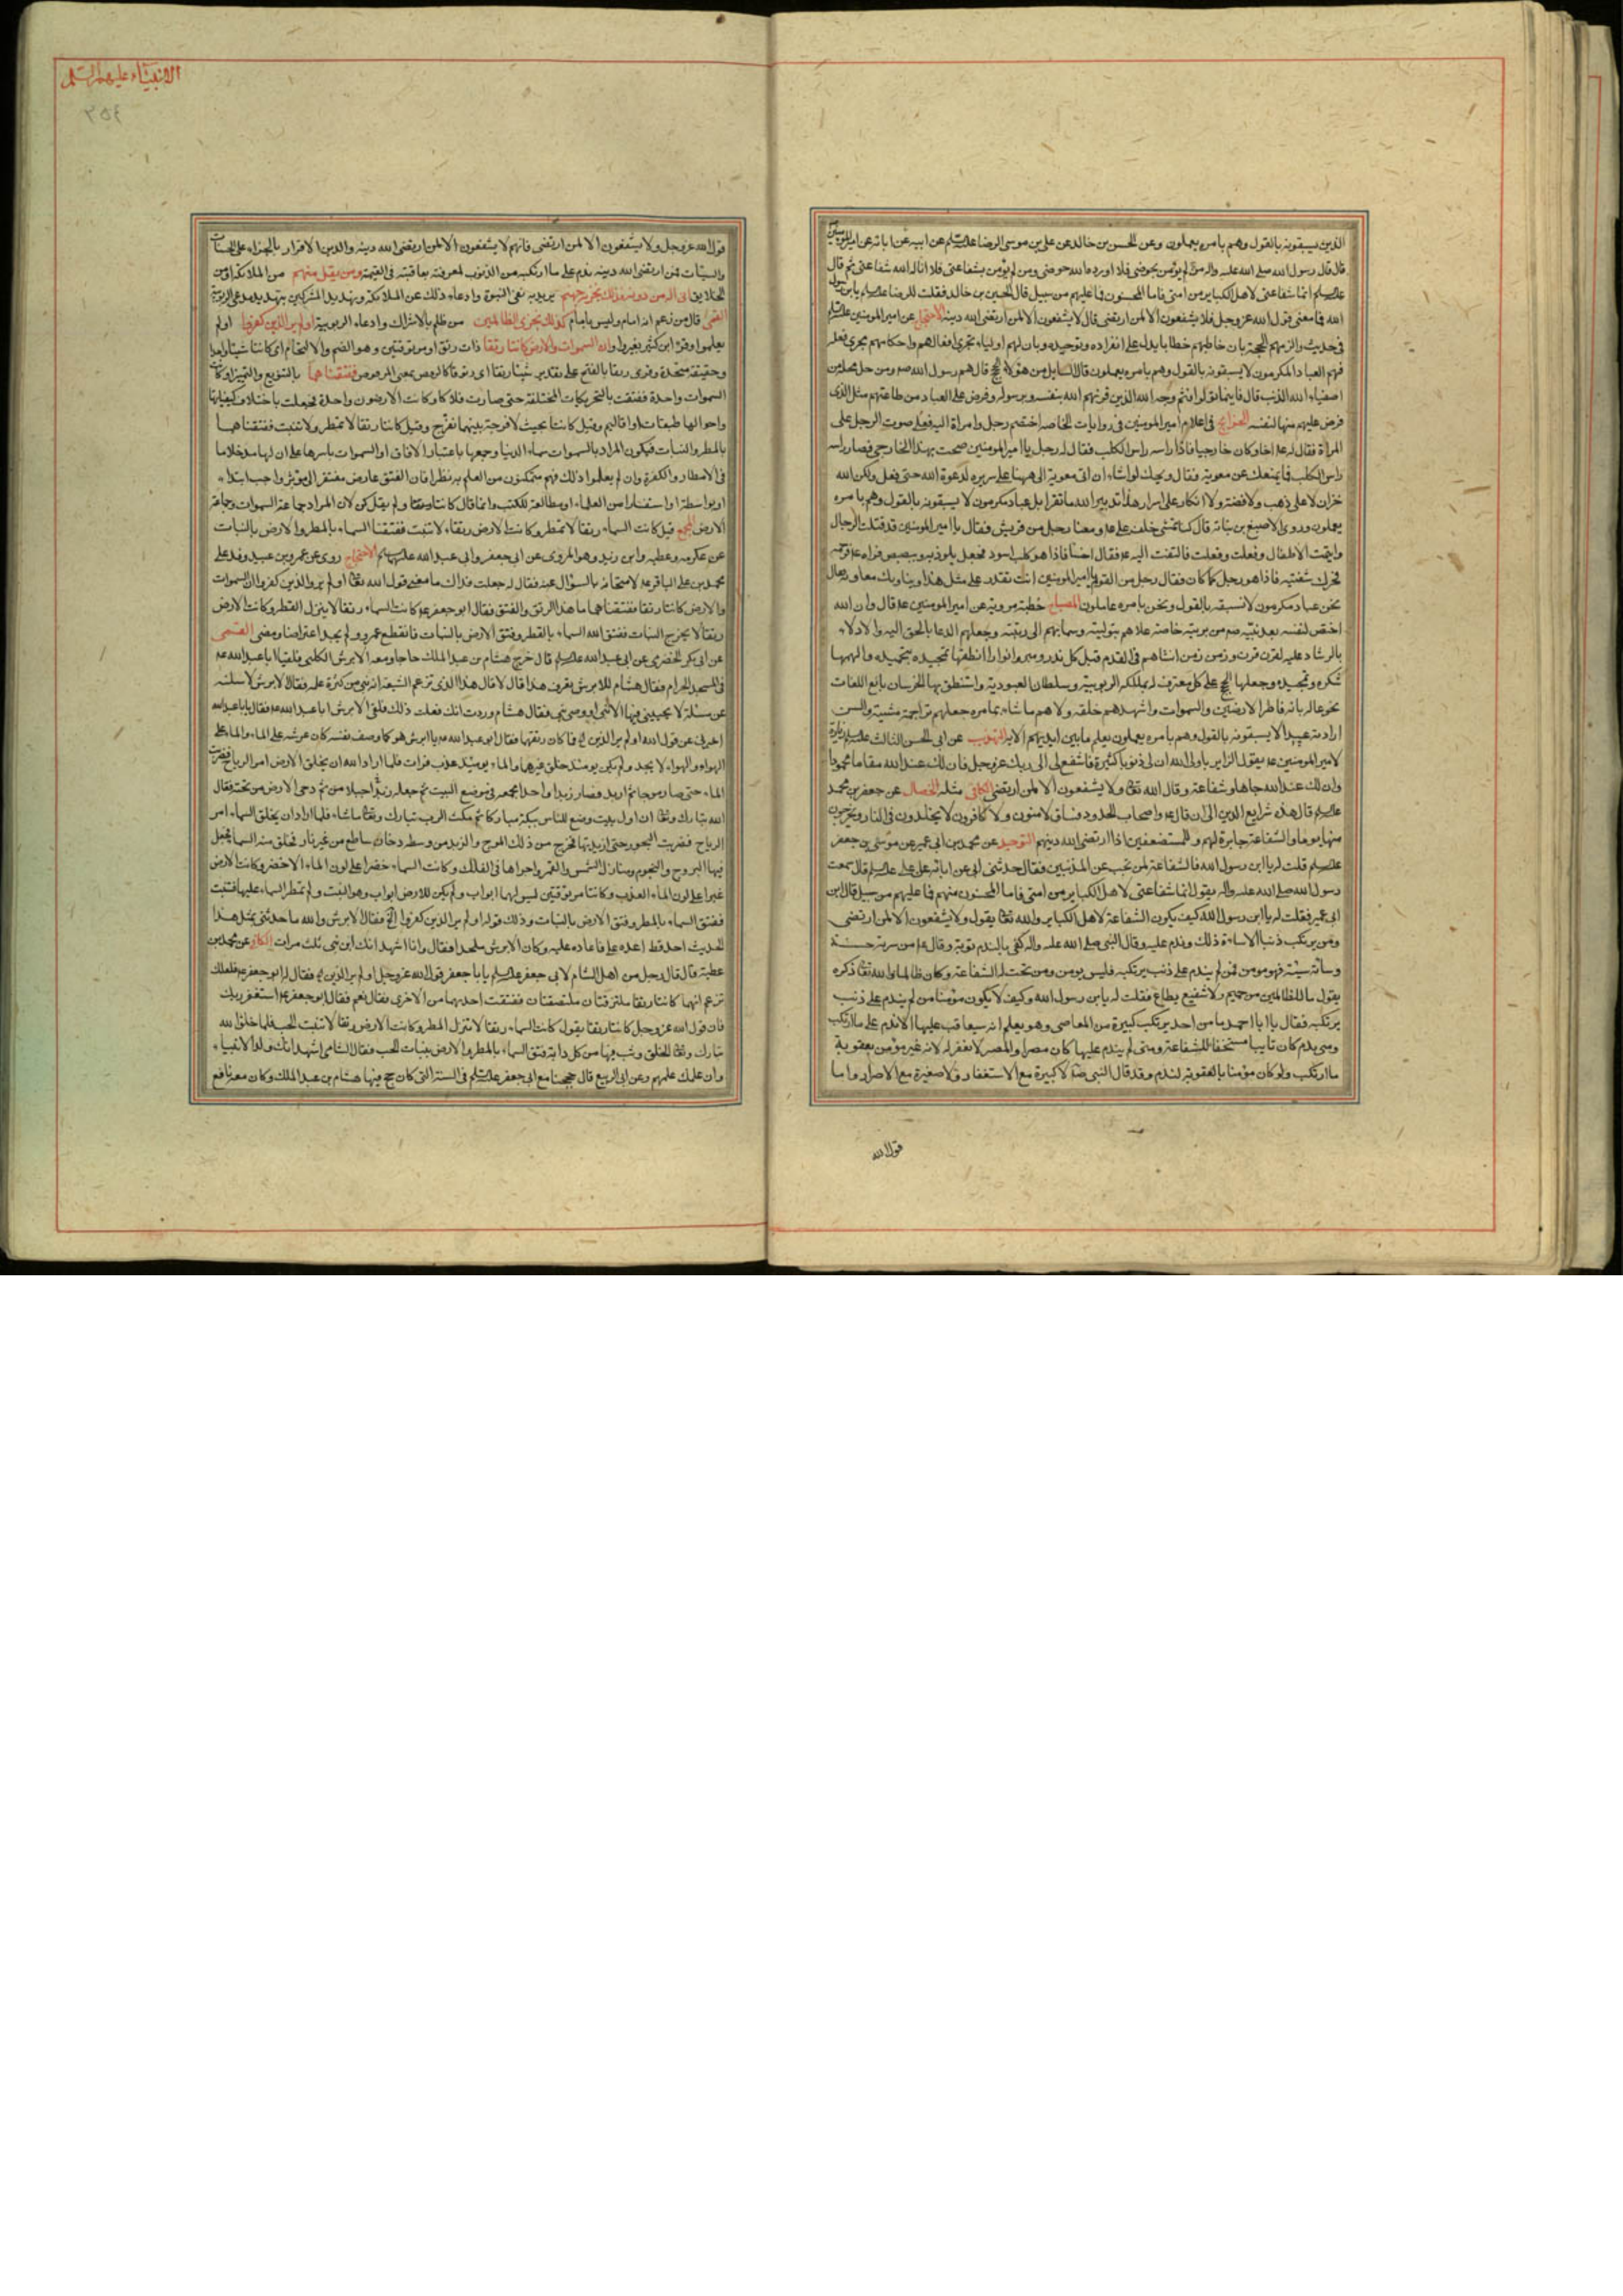 الذين يسبقونه بالقول وهم بامره يعملون وعن الحسين بن خالد عن علي بن موسى الرضا عن ابيه عن ابائه عن امير المومنين
قال قال رسول الله صلى الله عليه واله من لم يؤمن بحوضي فلا اورده الله حوضي ومن لم يؤمن بشفاعتي فلا اناله الله شفاعتي ثم قال
انما شفاعتي لاهل الكباير من امتي فاما المحسنون فما عليهم من سبيل قال الحسين بن خالد فقلت للرضا يابن رسول
الله فما معنى قول الله عز وجل ولا يشفعون الا لمن ارتضى قال لا يشفعون الا لمن ارتضى الله دينه الاحتجاج عن امير المومنين
في حديث والزمهم الحجة بان خاطبهم خطابا يدل على انفراده وتوحيده وبان لهم اولياء تجري افعالهم واحكامهم مجرى فعله
فهم العباد المكرمون لا يسبقونه بالقول وهم بامره يعملون قال السايل من هؤلاء الحجج قال هم رسول الله ومن حل محله من
اصفياء الله الذين قال فاينما تولوا فثم وجه الله الذين قرنهم الله بنفسه وبرسوله وفرض على العباد من طاعتهم مثل الذي
فرض عليهم منها لنفسه الخرايج في اعلام امير المومنين في روايات الخاصه اختصم رجل وامراة اليه فعلا صوت الرجل على
المراة فقال له اخسا وكان خارجيا فاذا راسه راس الكلب فقال له رجل يا امير المومنين صحت بهذا الخارجي فصار راسه
راس الكلب فما يمنعك عن معوية فقال ويحك لو اشاء ان اتي معوية الى ههنا على سريره لدعوة الله حتى فعل ولكن لله
خزان لا على ذهب ولا فضة ولا انكار على اسرار هذا تدبير الله ما تقرا بل عباد مكرمون لا يسبقونه بالقول وهم بامره
يعملون وروى الاصبغ بن نباته قال كنا نمشي خلف علي ومعنا رجل من قريش فقال يا امير المومنين قد قتلت الرجال
وايتمت الاطفال وفعلت وفعلت فالتفت اليه فقال اخسا فاذا هو كلب اسود فجعل يلوذ به ويبصبص فراه
فحرك شفتيه فاذا هو رجل كما كان فقال رجل من القوم يا امير المومنين انت تقدر على مثل هذا ويناويك معاوية فقال
نحن عباد مكرمون لا نسبقه بالقول ونحن بامره عاملون المصباح خطبة مروية عن امير المومنين قال وان الله
اختص لنفسه بعد نبيه من بريته خاصة علاهم بتوليته وسما بهم الى رتبته وجعلهم الدعا بالحق اليه والادلاء
بالرشاد عليه لقرن قرن وزمن زمن انشاهم في القدم قبل كل مذرو ومبرو انوارا انطقها بتحميده والهمها
شكره وتمجيده وجعلها الحجج على كل معترف له بملكة الربوبية وسلطان العبودية واستنطق بها الخرسان بانواع اللغات
بخوعا له بانه فاطر الارضين والسموات واشهدهم خلقه وولاهم ما شاء من امره جعلهم تراجمة مشيته والسن
ارادته عبيدا لا يسبقونه بالقول وهم بامره يعملون يعلم ما بين ايديهم الاية التهذيب عن ابي الحسن الثالث زيارة
لامير المومنين يقول الزاير يا ولي الله ان لي ذنوبا كثيرة فاشفع لي الى ربك عز وجل فان لك عند الله مقاما محمودا
وان لك عند الله جاها وشفاعة وقال الله ولا يشفعون الا لمن ارتضى الكافي مثله الخصال عن جعفر بن محمد
قال هذه شرايع الدين الى ان قال واصحاب الحدود فساق لا مومنون ولا كافرون لا يخلدون في النار ويخرجون
منها يوما والشفاعة جايزة لهم وللمستضعفين اذا ارتضى الله دينهم التوحيد عن محمد بن ابي عمير عن موسى بن جعفر
قلت له يا ابن رسول الله فالشفاعة لمن تجب من المذنبين فقال حدثني ابي عن ابائه عن علي قال سمعت
رسول الله صلى الله عليه واله يقول انما شفاعتي لاهل الكباير من امتي فاما المحسنون منهم فما عليهم من سبيل قال ابن
ابي عمير فقلت له يا ابن رسول الله كيف يكون الشفاعة لاهل الكباير والله يقول ولا يشفعون الا لمن ارتضى
ومن يرتكب ذنبا الا ساءه ذلك وندم عليه وقال النبي صلى الله عليه واله كفى بالندم توبة وقال من سرته حسنة
وساته سيئة فهو مومن فمن لم يندم على ذنب يرتكبه فليس بمومن ولم تجب له الشفاعة وكان ظالما والله ذكره
يقول ما للظالمين من حميم ولا شفيع يطاع فقلت له يابن رسول الله وكيف لا يكون مؤمنا من لم يندم على ذنب
يرتكبه فقال يا ابا احمد ما من احد يرتكب كبيرة من المعاصي وهو يعلم انه سيعاقب عليها الا ندم على ما ارتكب
ومتى ندم كان تايبا مستحقا للشفاعة ومتى لم يندم عليها كان مصرا والمصر لا يغفر له لانه غير مؤمن بعقوبة
ما ارتكب ولو كان مؤمنا بالعقوبة لندم وقد قال النبي لا كبيرة مع الاستغفار ولا صغيرة مع الاصرار واما
قول الله
الانبياء عليهم السلم
٣٥٤
قول الله عز وجل ولا يشفعون الا لمن ارتضى فانهم لا يشفعون الا لمن ارتضى الله دينه والدين الاقرار بالجزاء على الحسنات
والسيئات فمن ارتضى الله دينه ندم على ما ارتكبه من الذنوب لمعرفته بعاقبته في القيمة ومن يقل منهم من الملائكة او من
الخلايق اني اله من دونه فذلك نجزيه جهنم يريد به نفي النبوة وادعاء ذلك عن الملائكة وتهديد المشركين بتهديد مدعي الربوبية
القمي قال من زعم انه امام وليس بامام كذلك نجزي الظالمين من ظلم بالاشراك وادعاء الربوبية اولم ير الذين كفروا اولم
يعلموا وقرأ ابن كثير بغير واو ان السموات والارض كانتا رتقا ذات رتق او مرتوقتين وهو الضم والالتحام اي كانتا شيئا واحدا
وحقيقة متحدة وقرى رتقا بالفتح على تقدير شيئا رتقا اي مرتوقا كالرفض بمعنى المرفوض ففتقناهما بالتنويع والتمييز او كانت
السموات واحدة ففتقت بالتحريكات المختلفة حتى صارت افلاكا وكانت الارضون واحدة فجعلت باختلاف كيفياتها
واحوالها طبقات او اقاليم وقيل كانتا بحيث لا فرجة بينهما ففرج وقيل كانتا رتقا لا تمطر ولا تنبت ففتقناهما
بالمطر والنبات فيكون المراد بالسموات سماء الدنيا وجمعها باعتبار الافاق او السموات باسرها على ان لها مدخلا ما
في الامطار والكفرة وان لم يعلموا ذلك فهم متمكنون من العلم به نظرا فان الفتق عارض مفتقر الى موثر واجب ابتداء
او بواسطة او استفسارا من العلماء او مطالعة للكتب وانما قال كانتا ولم يقل كن لان المراد جماعة السموات وجماعة
الارض المجمع قيل كانت السماء رتقا لا تمطر وكانت الارض رتقا لا تنبت ففتقنا السماء بالمطر والارض بالنبات
عن عكرمه وعطيه وابن زيد وهو المروى عن ابي جعفر وابي عبد الله عليهما السلم الاحتجاج روى عن عمرو بن عبيد وفد على
محمد بن علي الباقر لامتحانه بالسؤال عنه فقال له جعلت فداك ما معنى قول الله اولم ير الذين كفروا ان السموات
والارض كانتا رتقا ففتقناهما ما هذا الرتق والفتق فقال ابو جعفر كانت السماء رتقا لا ينزل القطر وكانت الارض
رتقا لا يخرج النبات ففتق الله السماء بالقطر وفتق الارض بالنبات فانقطع عمرو ولم يجد اعتراضا ومضى القمي
عن ابي بكر الحضرمي عن ابي عبد الله قال خرج هشام بن عبد الملك حاجا ومعه الابرش الكلبي فلقيا ابا عبد الله
في المسجد الحرام فقال هشام للابرش تعرف هذا قال لا قال هذا الذي تزعم الشيعة انه نبي من كثرة علمه فقال الابرش لاسئلنه
عن مسئلة لا يجيبني فيها الا نبي او وصي نبي فقال هشام وددت انك فعلت ذلك فلقي الابرش ابا عبد الله فقال يا ابا عبد الله
اخبرني عن قول الله اولم ير الذين فما كان رتقهما فقال ابو عبد الله يا ابرش هو كما وصف نفسه كان عرشه على الماء والماء على
الهواء والهواء لا يحد ولم يكن يومئذ خلق غيرهما والماء يومئذ عذب فرات فلما اراد الله ان يخلق الارض امر الرياح فضربت
الماء حتى صار موجا ثم ازبد فصار زبدا واحدا فجمعه في موضع البيت ثم جعله جبلا من زبد ثم دحى الارض من تحته فقال
الله تبارك ان اول بيت وضع للناس للذي ببكة مباركا ثم مكث الرب تبارك ما شاء فلما اراد ان يخلق السماء امر
الرياح فضربت البحور حتى ازبدتها فخرج من ذلك الموج والزبد من وسطه دخان ساطع من غير نار فخلق منه السماء فجعل
فيها البروج والنجوم ومنازل الشمس والقمر واجراها في الفلك وكانت السماء خضرا على لون الماء الاخضر وكانت الارض
غبرا على لون الماء العذب وكانتا مرتوقتين ليس لهما ابواب ولم يكن للارض ابواب وهو النبت ولم تمطر السماء عليها فتنبت
ففتق السماء بالمطر وفتق الارض بالنبات وذلك قوله اولم ير الذين كفروا فقال الابرش والله ما حدثني بمثل هذا
الحديث احد قط اعده علي فاعاده عليه وكان الابرش ملحدا فقال وانا اشهد انك ابن نبي ثلث مرات الكافي عن محمد بن
عطية قال قال رجل من اهل الشام لابي جعفر يا ابا جعفر قول الله عز وجل اولم ير الذين فقال له ابو جعفر فلعلك
تزعم انهما كانتا رتقا ملتزقتان ملتصقتان ففتقت احديهما من الاخرى فقال نعم فقال ابو جعفر استغفر ربك
فان قول الله عز وجل كانتا رتقا يقول كانت السماء رتقا لا تنزل المطر وكانت الارض رتقا لا تنبت الحب فلما خلق الله
تبارك الخلق وبث فيها من كل دابة فتق السماء بالمطر والارض بنبات الحب فقال الشامي اشهد انك من ولد الانبياء
وان علمك علمهم وعن ابي الربيع قال حججنا مع ابي جعفر في السنة التي كان حج فيها هشام بن عبد الملك وكان معه نافع